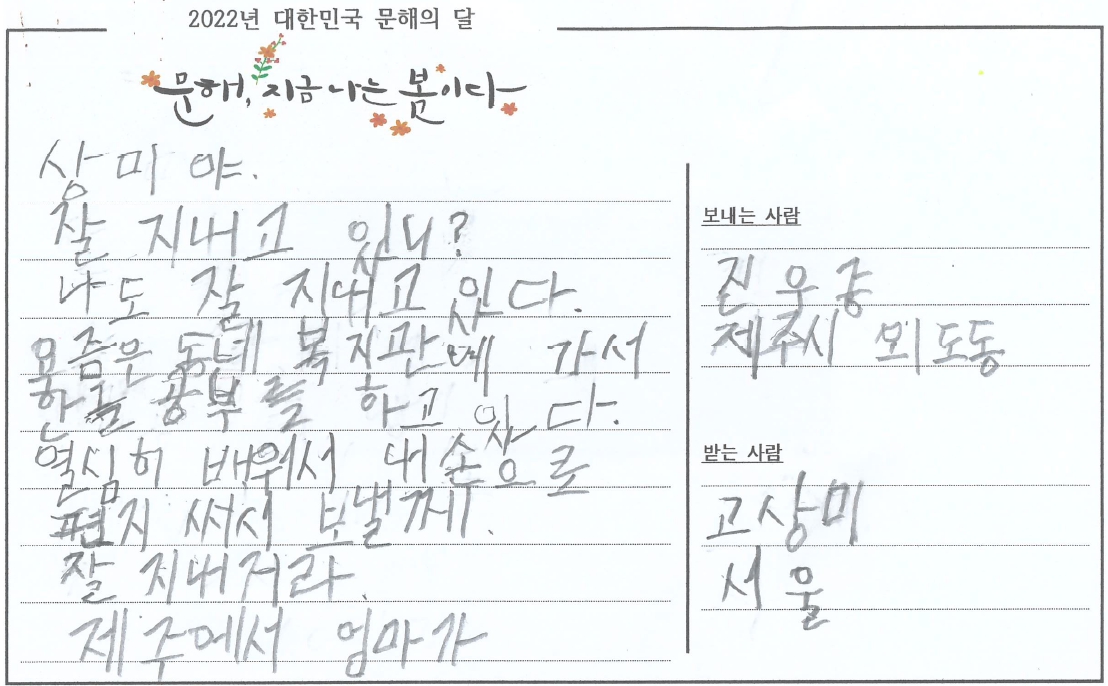 2022년 대한민국 문해의 달
문해, 지금 나는 봄이다
상미야.
잘 지내고 있니?
나도 잘 지내고 있다.
요즘은 동네 복지관에 가서
한글 공부를 하고 있다.
열심히 배워서 내 손으로
편지 써서 보낼께.
잘 지내거라.
제주에서 엄마가
보내는 사람
진우
제주시 외도동
받는 사람
고상미
서울